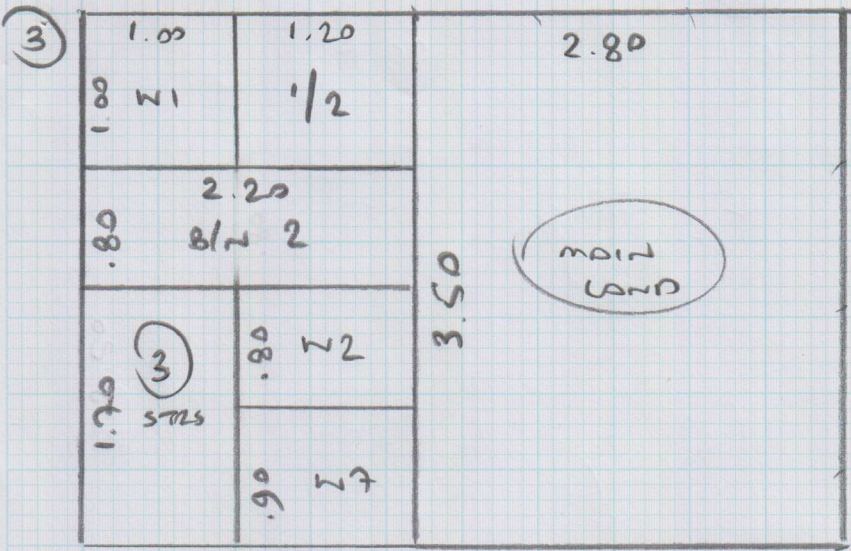 3
1.00
1.20
2.80
1.00
W1
1/2
2.20
.80
B/W 2
3.50
MAIN
LAND
3
STRS
1.70
.80
W2
.90
W7